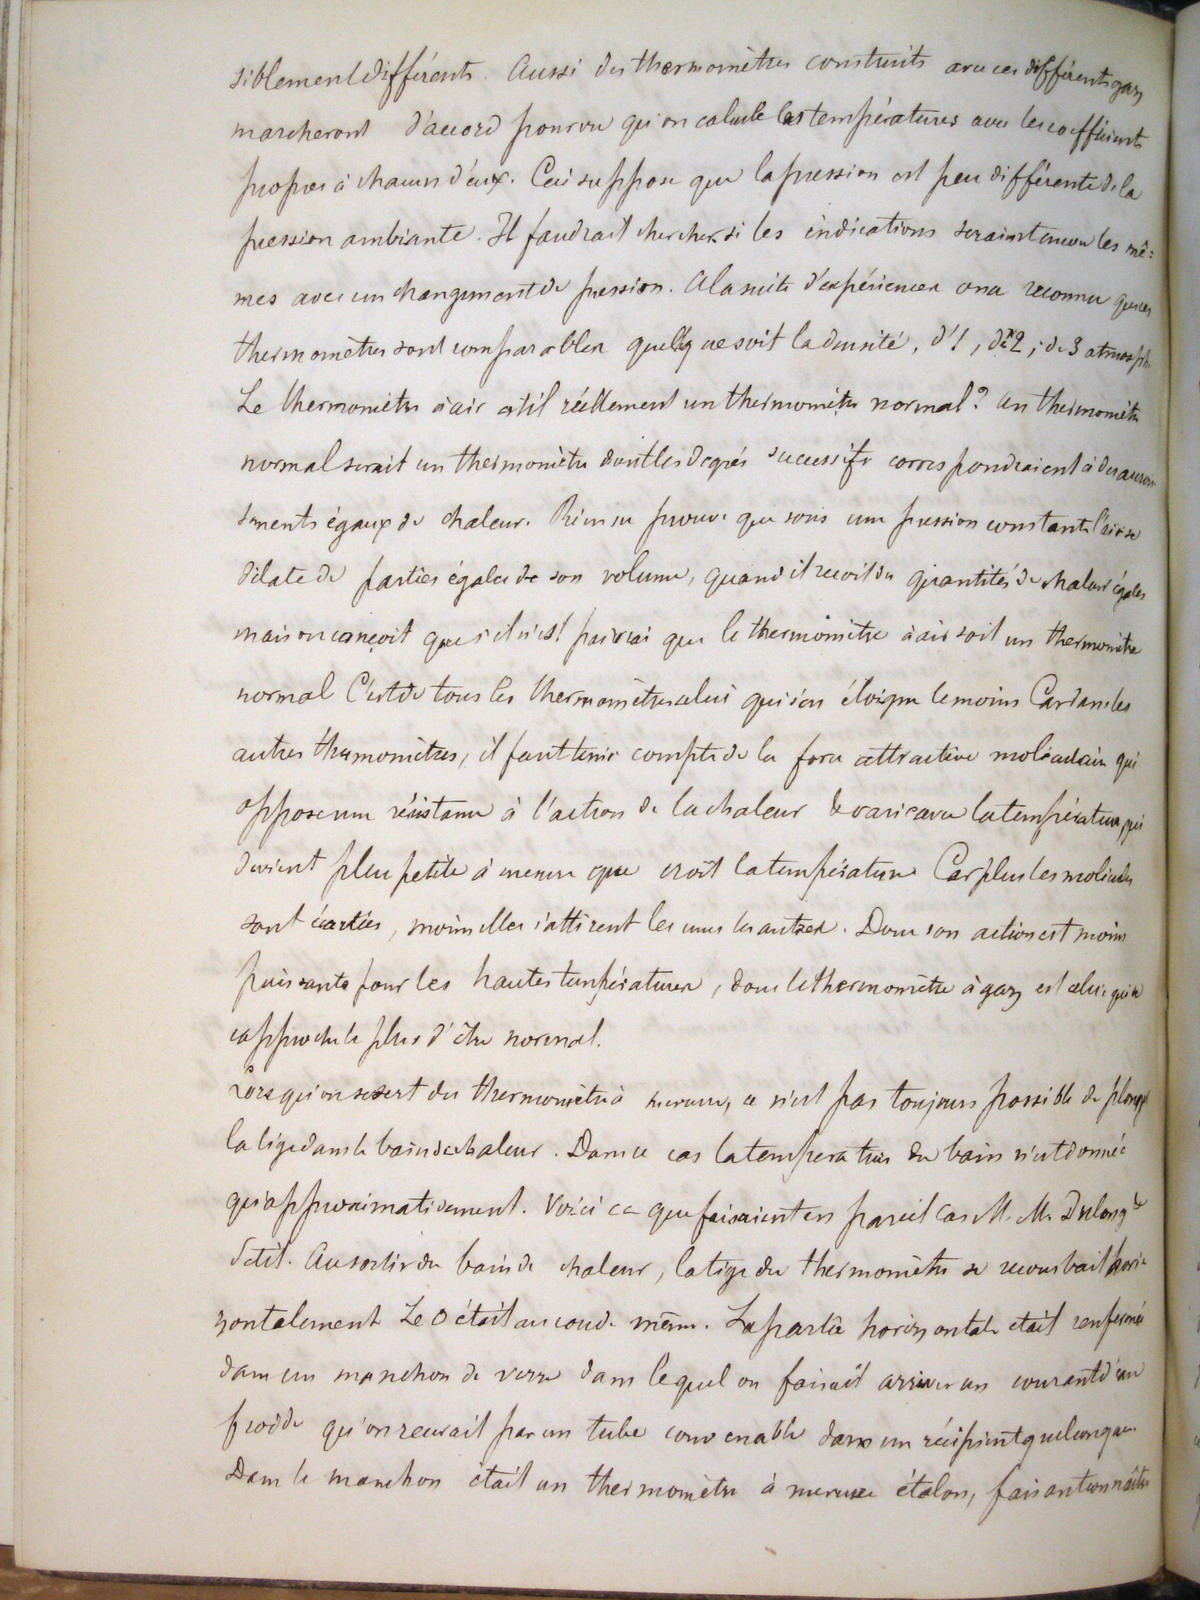 siblement différents. Aussi des thermomètres construits avec ces différents gaz
marcheront d'accord pourvu qu'on calcule les températures avec les coefficients
propres à chacun d'eux. Ceci suppose que la pression est peu différente de la
pression ambiante. Il faudrait chercher si les indications seraient encore les mê=
mes avec un changement de pression. A la suite d'expériences on a reconnu que ces
thermomètres sont comparables quelque soit la densité, d'1, de 2, de 3 atmosph
Le thermomètre à air est il réellement un thermomètre normal? Un thermomètre
normal serait un thermomètre dont les degrés successifs correspondraient à des accrois
sements égaux de chaleur. Rien ne prouve que sous une pression constante l'air se
dilate de parties égales de son volume, quand il reçoit des quantités de chaleur égales
mais on conçoit que s'il n'est pas vrai que le thermomètre à air soit un thermomètre
normal C'est de tous les thermomètres celui qui s'en éloigne le moins Car dans les
autres thermomètres, il faut tenir compte de la force attractive moléculaire qui
oppose une résistance à l'action de la chaleur & varie avec la température, qui
devient plus petite à mesure que croît la température Car plus les molécules
sont écartées, moins elles s'attirent les unes les autres. Donc son action est moins
puissante pour les hautes températures, donc le thermomètre à gaz est celui qui se
rapproche le plus d'être normal.
Lorsqu'on se sert du thermomètre à mercure, ce n'est pas toujours possible de plonger
la tige dans le bain de chaleur. Dans ce cas la température du bain n'est donnée
qu'approximativement. Voici ce que faisaient en pareil cas M. M. Dulong &
Petit. Au sortir du bain de chaleur, la tige du thermomètre se recourbait hori-
zontalement Le 0 était au coude même. La partie horizontale était renfermée
dans un manchon de verre dans lequel on faisait arriver un courant d'eau
froide qu'on recevait par un tube convenable dans un récipient quelconque.
Dans le manchon était un thermomètre à mercure étalon, faisant connaître